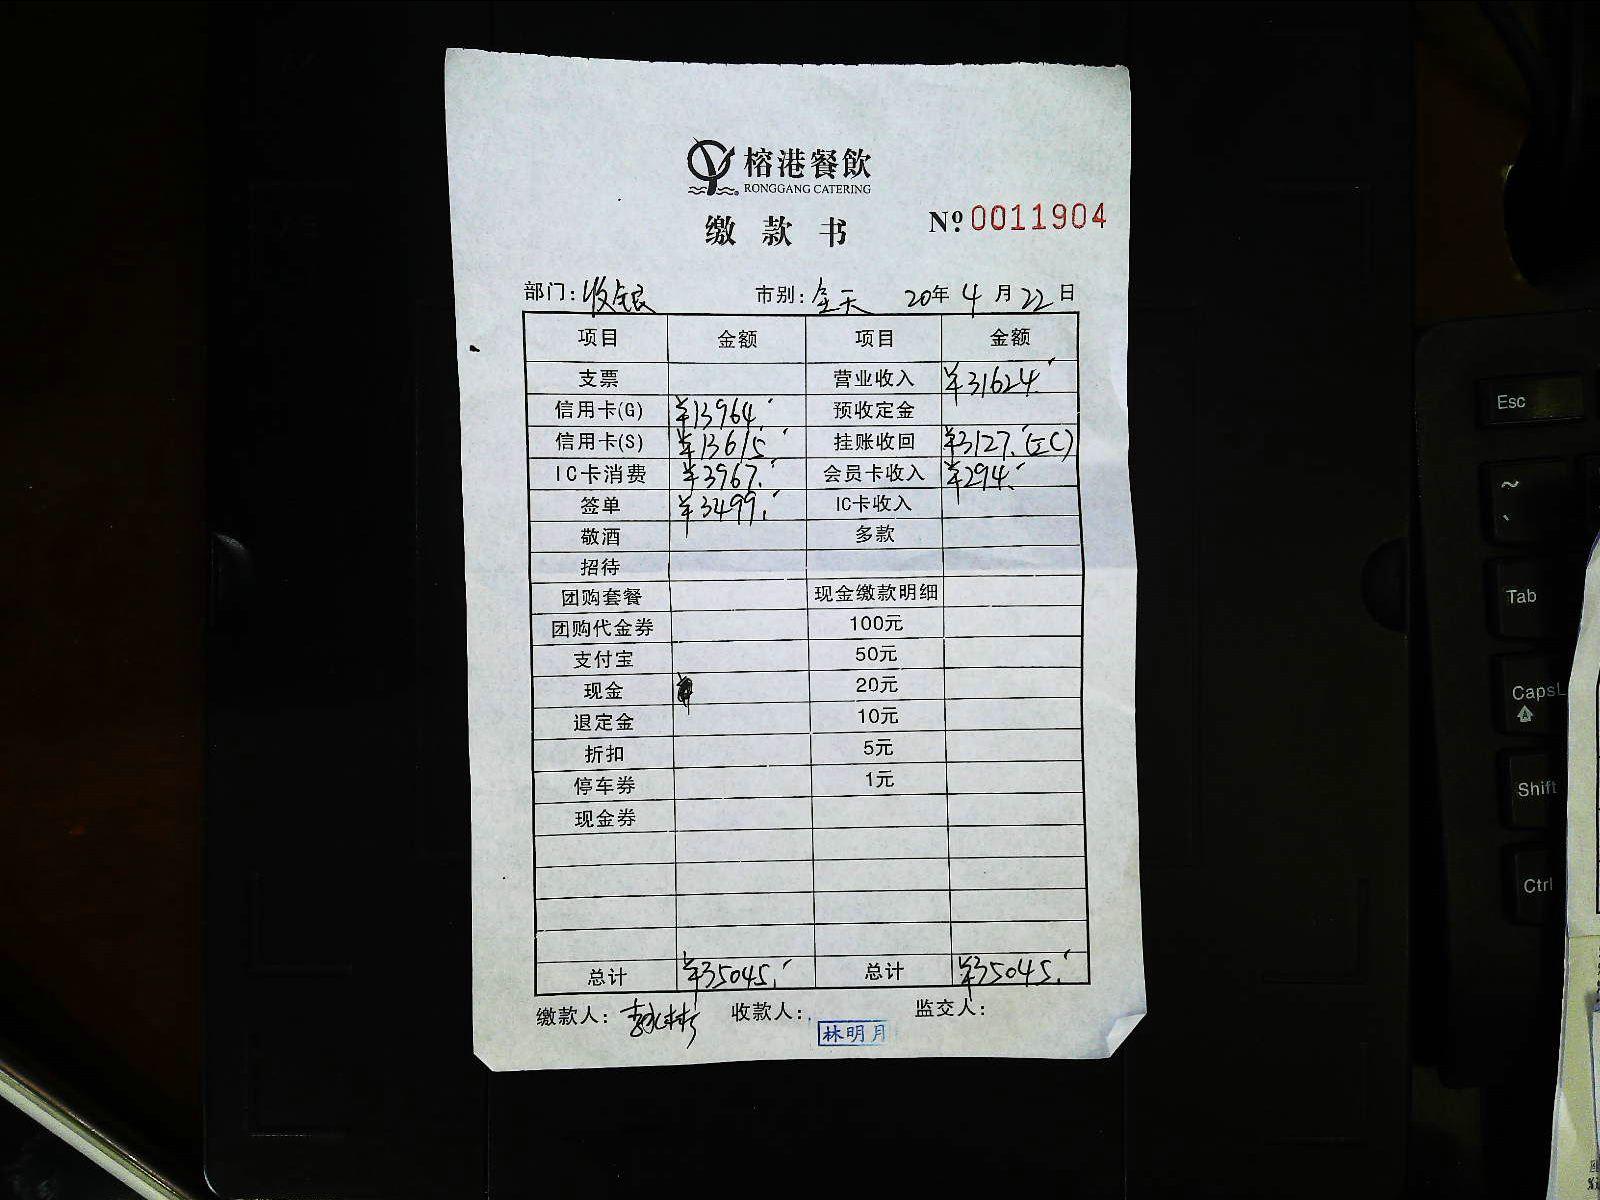 榕港餐飲
RONGGANG CATERING
缴款书 Nº 0011904
部门: 收银 市别: 全天 20年 4月 22日
项目 金额 项目 金额
支票 营业收入 ¥31624.
信用卡(G) ¥13964. 预收定金
信用卡(S) ¥13615 挂账收回 ¥3127.(IC)
IC卡消费 ¥3967. 会员卡收入 ¥294.
签单 ¥3499. IC卡收入
敬酒 多款
招待
团购套餐 现金缴款明细
团购代金券 100元
支付宝 50元
现金 ¥ 20元
退定金 10元
折扣 5元
停车券 1元
现金券
总计 ¥35045. 总计 ¥35045.
缴款人: 收款人: 林明月 监交人:
Esc
~
`
Tab
CapsL
Shift
Ctrl